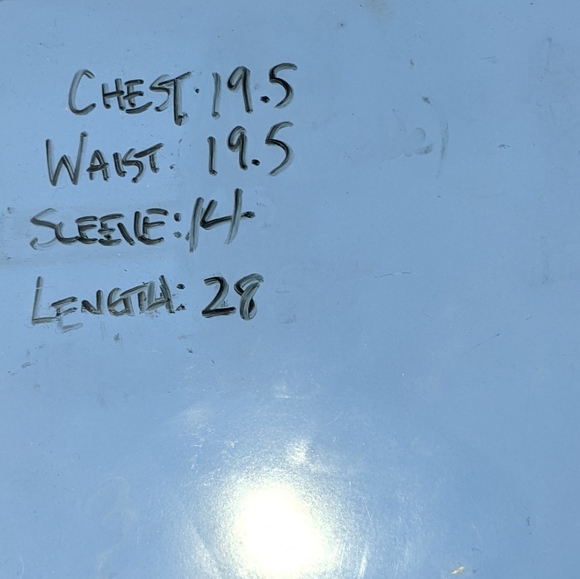 CHEST: 19.5
WAIST: 19.5
SLEEVE: 14
LENGTH: 28